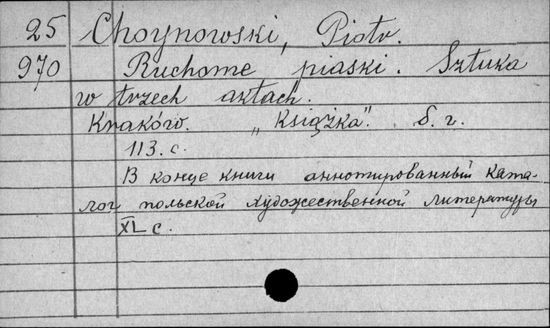 25 Choynowski, Piotr.
970 Ruchome piaski. Sztuka
w trzech aktach.
Kraków. „Książka". б. г.
113. с.
В конце книги аннотированный ката-
лог польской художественной литературы
XL с.